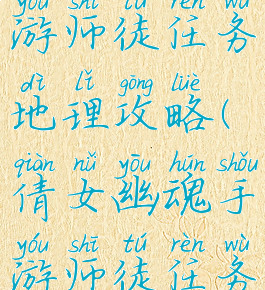 yóu shī tú rèn wù
游师徒任务
dì lǐ gōng lüè
地理攻略(
qiàn nǚ yōu hún shǒu
倩女幽魂手
yóu shī tú rèn wù
游师徒任务